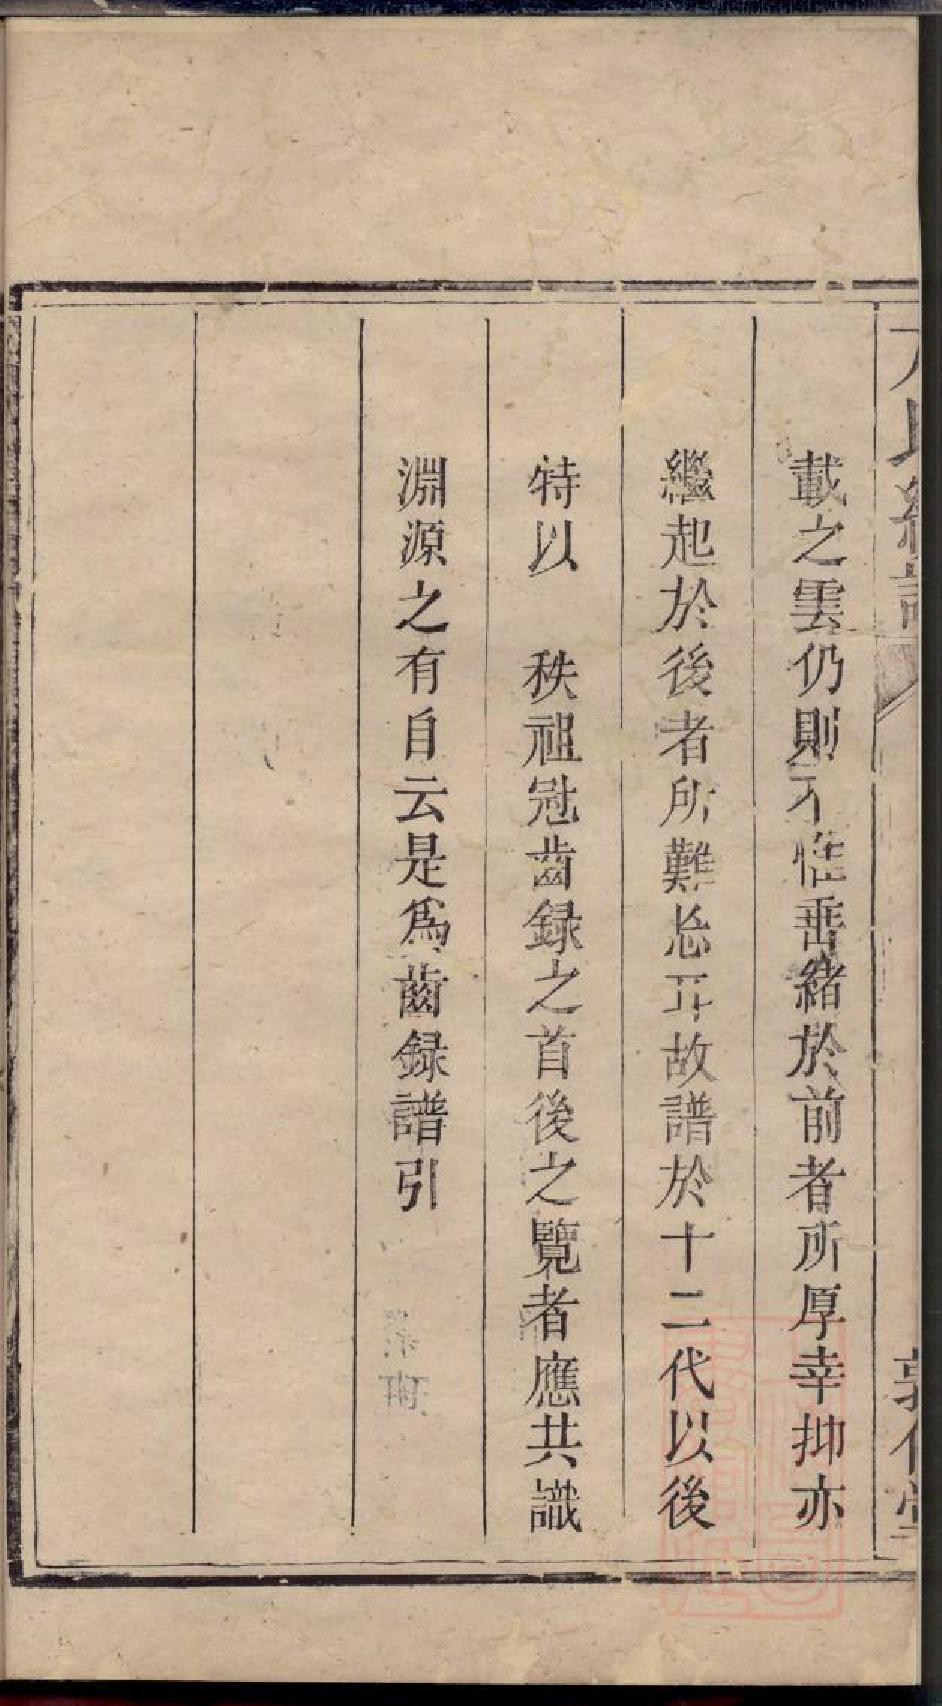 載之雲仍則不惟垂緒於前者所厚幸抑亦
繼起於後者所難忘耳故譜於十二代以後
特以　秩祖冠齒録之首後之覽者應共識
淵源之有自云是爲齒録譜引